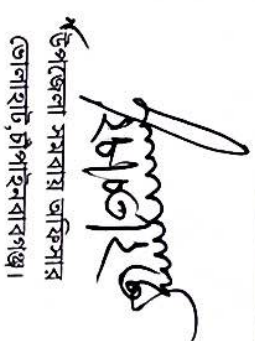 উপজেলা সমবায় অফিসার
ভোলাহাট, চাঁপাইনবাবগঞ্জ।